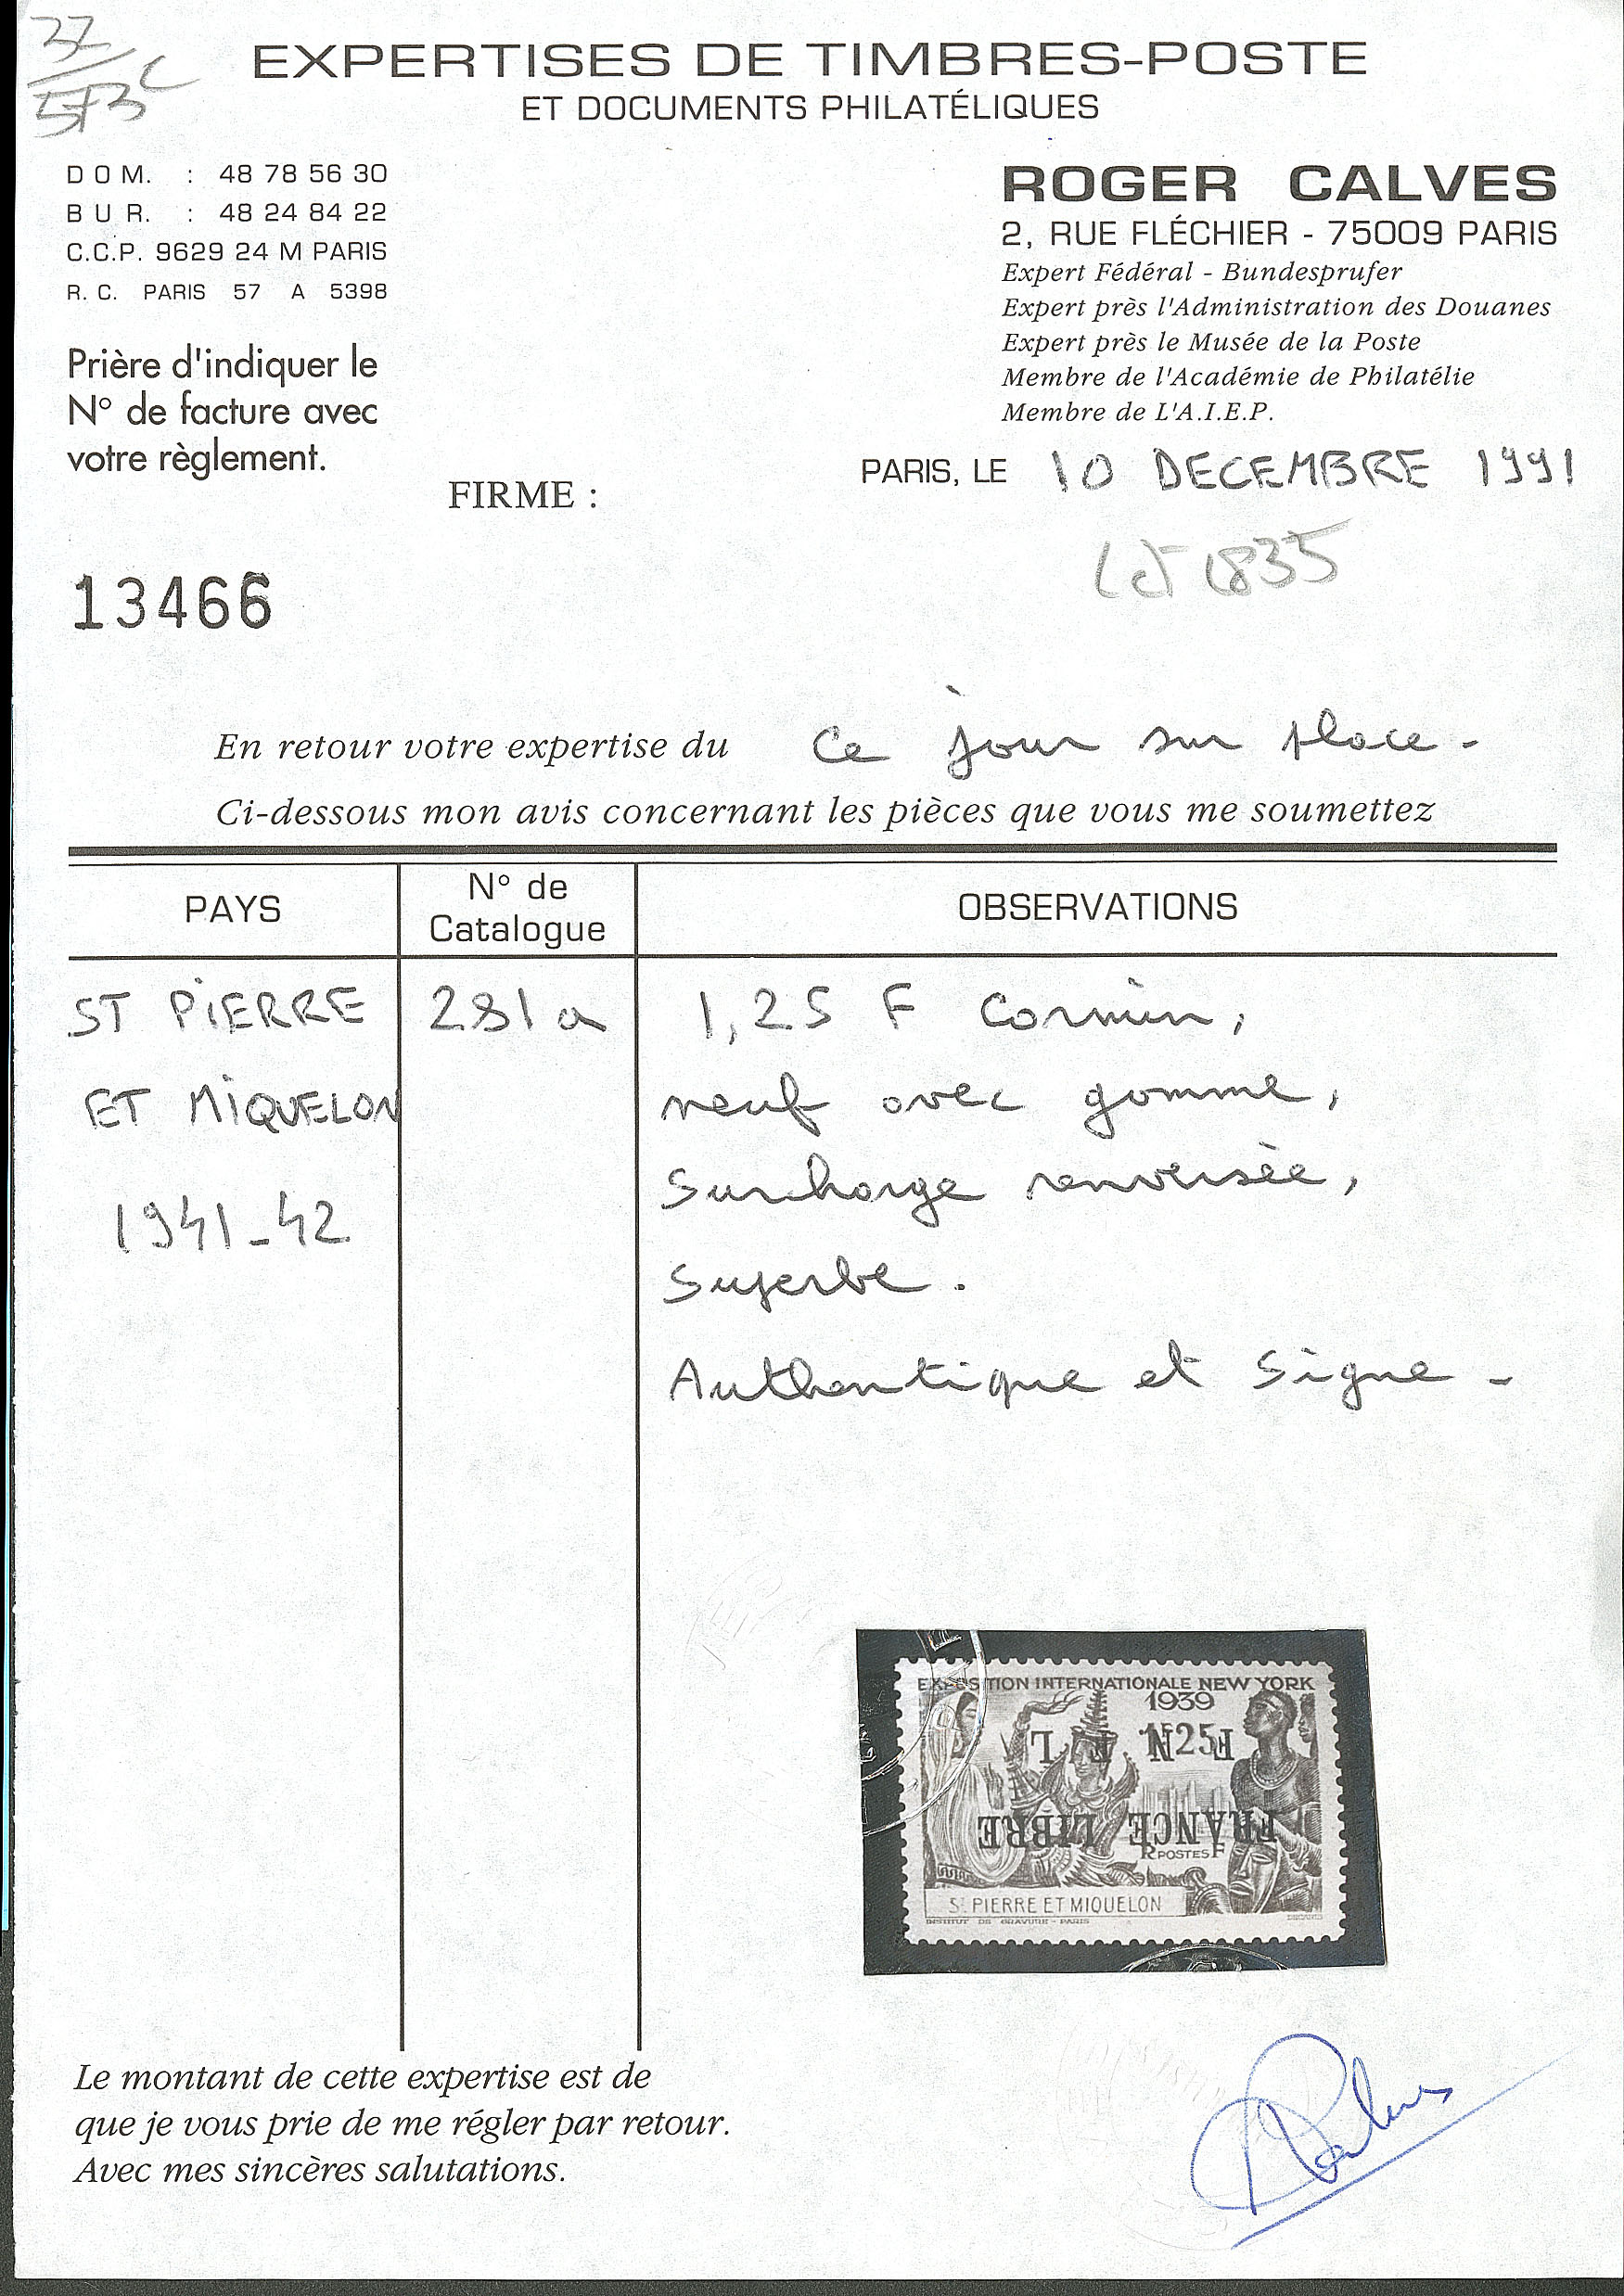 37
573 C
EXPERTISES DE TIMBRES-POSTE
ET DOCUMENTS PHILATÉLIQUES
DOM. : 48 78 56 30
BUR. : 48 24 84 22
C.C.P. 9629 24 M PARIS
R. C. PARIS 57 A 5398
Prière d'indiquer le
N° de facture avec
votre règlement.
ROGER CALVES
2, RUE FLÉCHIER - 75009 PARIS
Expert Fédéral - Bundesprufer
Expert près l'Administration des Douanes
Expert près le Musée de la Poste
Membre de l'Académie de Philatélie
Membre de L'A.I.E.P.
PARIS, LE 10 DECEMBRE 1991
FIRME :
13466
En retour votre expertise du Ce jour sur place -
Ci-dessous mon avis concernant les pièces que vous me soumettez
PAYS
N° de
Catalogue
OBSERVATIONS
ST PIERRE 281a 1,25 F Carmin,
ET MIQUELON neuf avec gomme,
1941-42 Surcharge renversée,
Superbe.
Authentique et Signe -
EXPOSITION INTERNATIONALE NEW YORK
1939
1F25
F N F L
FRANCE LIBRE
R POSTES F
St PIERRE ET MIQUELON
INSTITUT DE GRAVURE - PARIS
Le montant de cette expertise est de
que je vous prie de me régler par retour.
Avec mes sincères salutations.
Calves